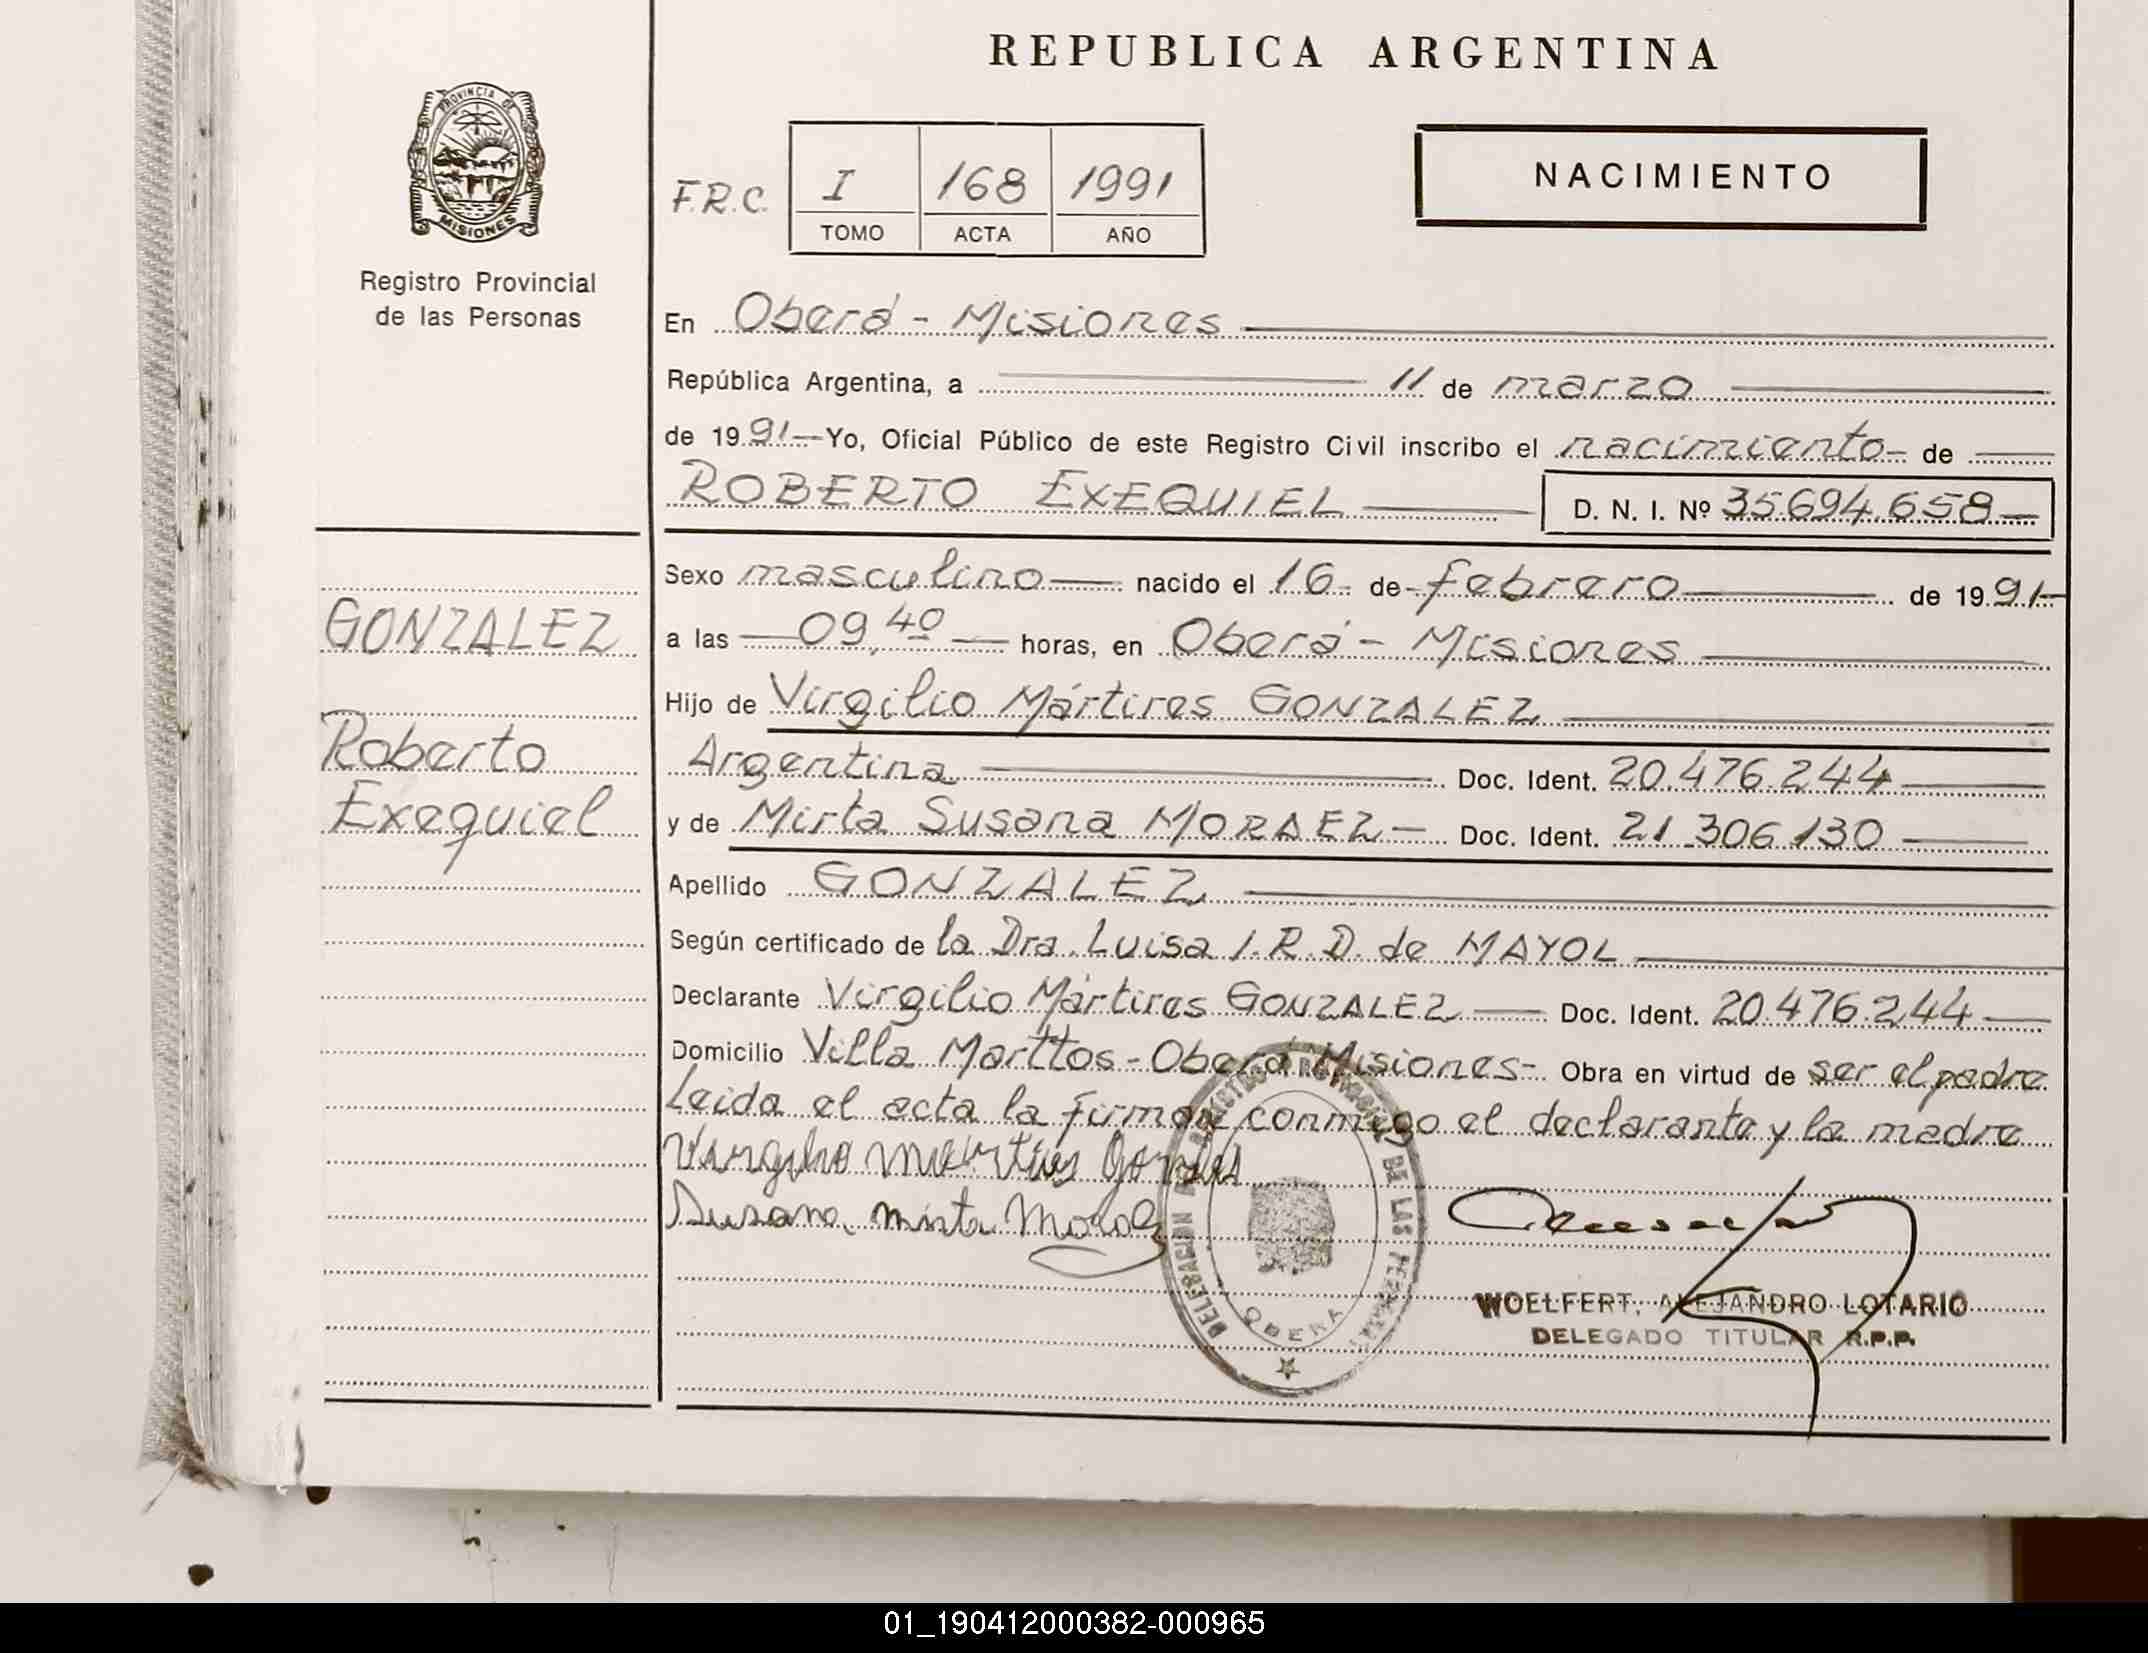 REPUBLICA ARGENTINA
PROVINCIA DE
MISIONES
Registro Provincial
de las Personas
F.R.C. I 168 1991
TOMO ACTA AÑO
NACIMIENTO
En Oberá - Misiones
República Argentina, a 11 de marzo
de 1991 Yo, Oficial Público de este Registro Civil inscribo el nacimiento de
ROBERTO EXEQUIEL D. N. I. Nº 35.694.658
Sexo masculino nacido el 16 de febrero de 1991
a las 09,40 horas, en Oberá - Misiones
Hijo de Virgilio Mártires GONZALEZ
Argentina Doc. Ident. 20.476.244
y de Mirta Susana MORAEZ Doc. Ident. 21.306.130
Apellido GONZALEZ
Según certificado de la Dra. Luisa I. R. D. de MAYOL
Declarante Virgilio Mártires GONZALEZ Doc. Ident. 20.476.244
Domicilio Villa Marttos - Oberá Misiones - Obra en virtud de ser el padre
Leida el acta la firman conmigo el declarante y la madre
GONZALEZ
Roberto
Exequiel
Susana Mirta
DELEGACION REGISTRO PROVINCIAL DE LAS PERSONAS
OBERA
WOELFERT, ALEJANDRO LOTARIO
DELEGADO TITULAR R.P.P.
01_190412000382-000965